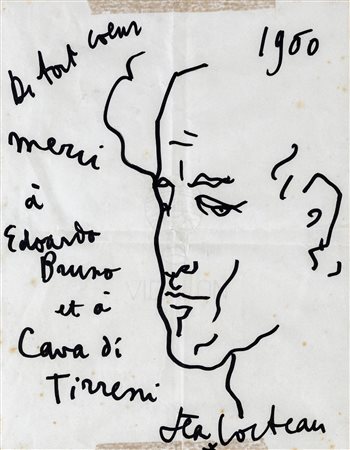 De tout coeur
merci
à
Edoardo
Bruno
et à
Cava di
Tirreni
1960
Jean Cocteau